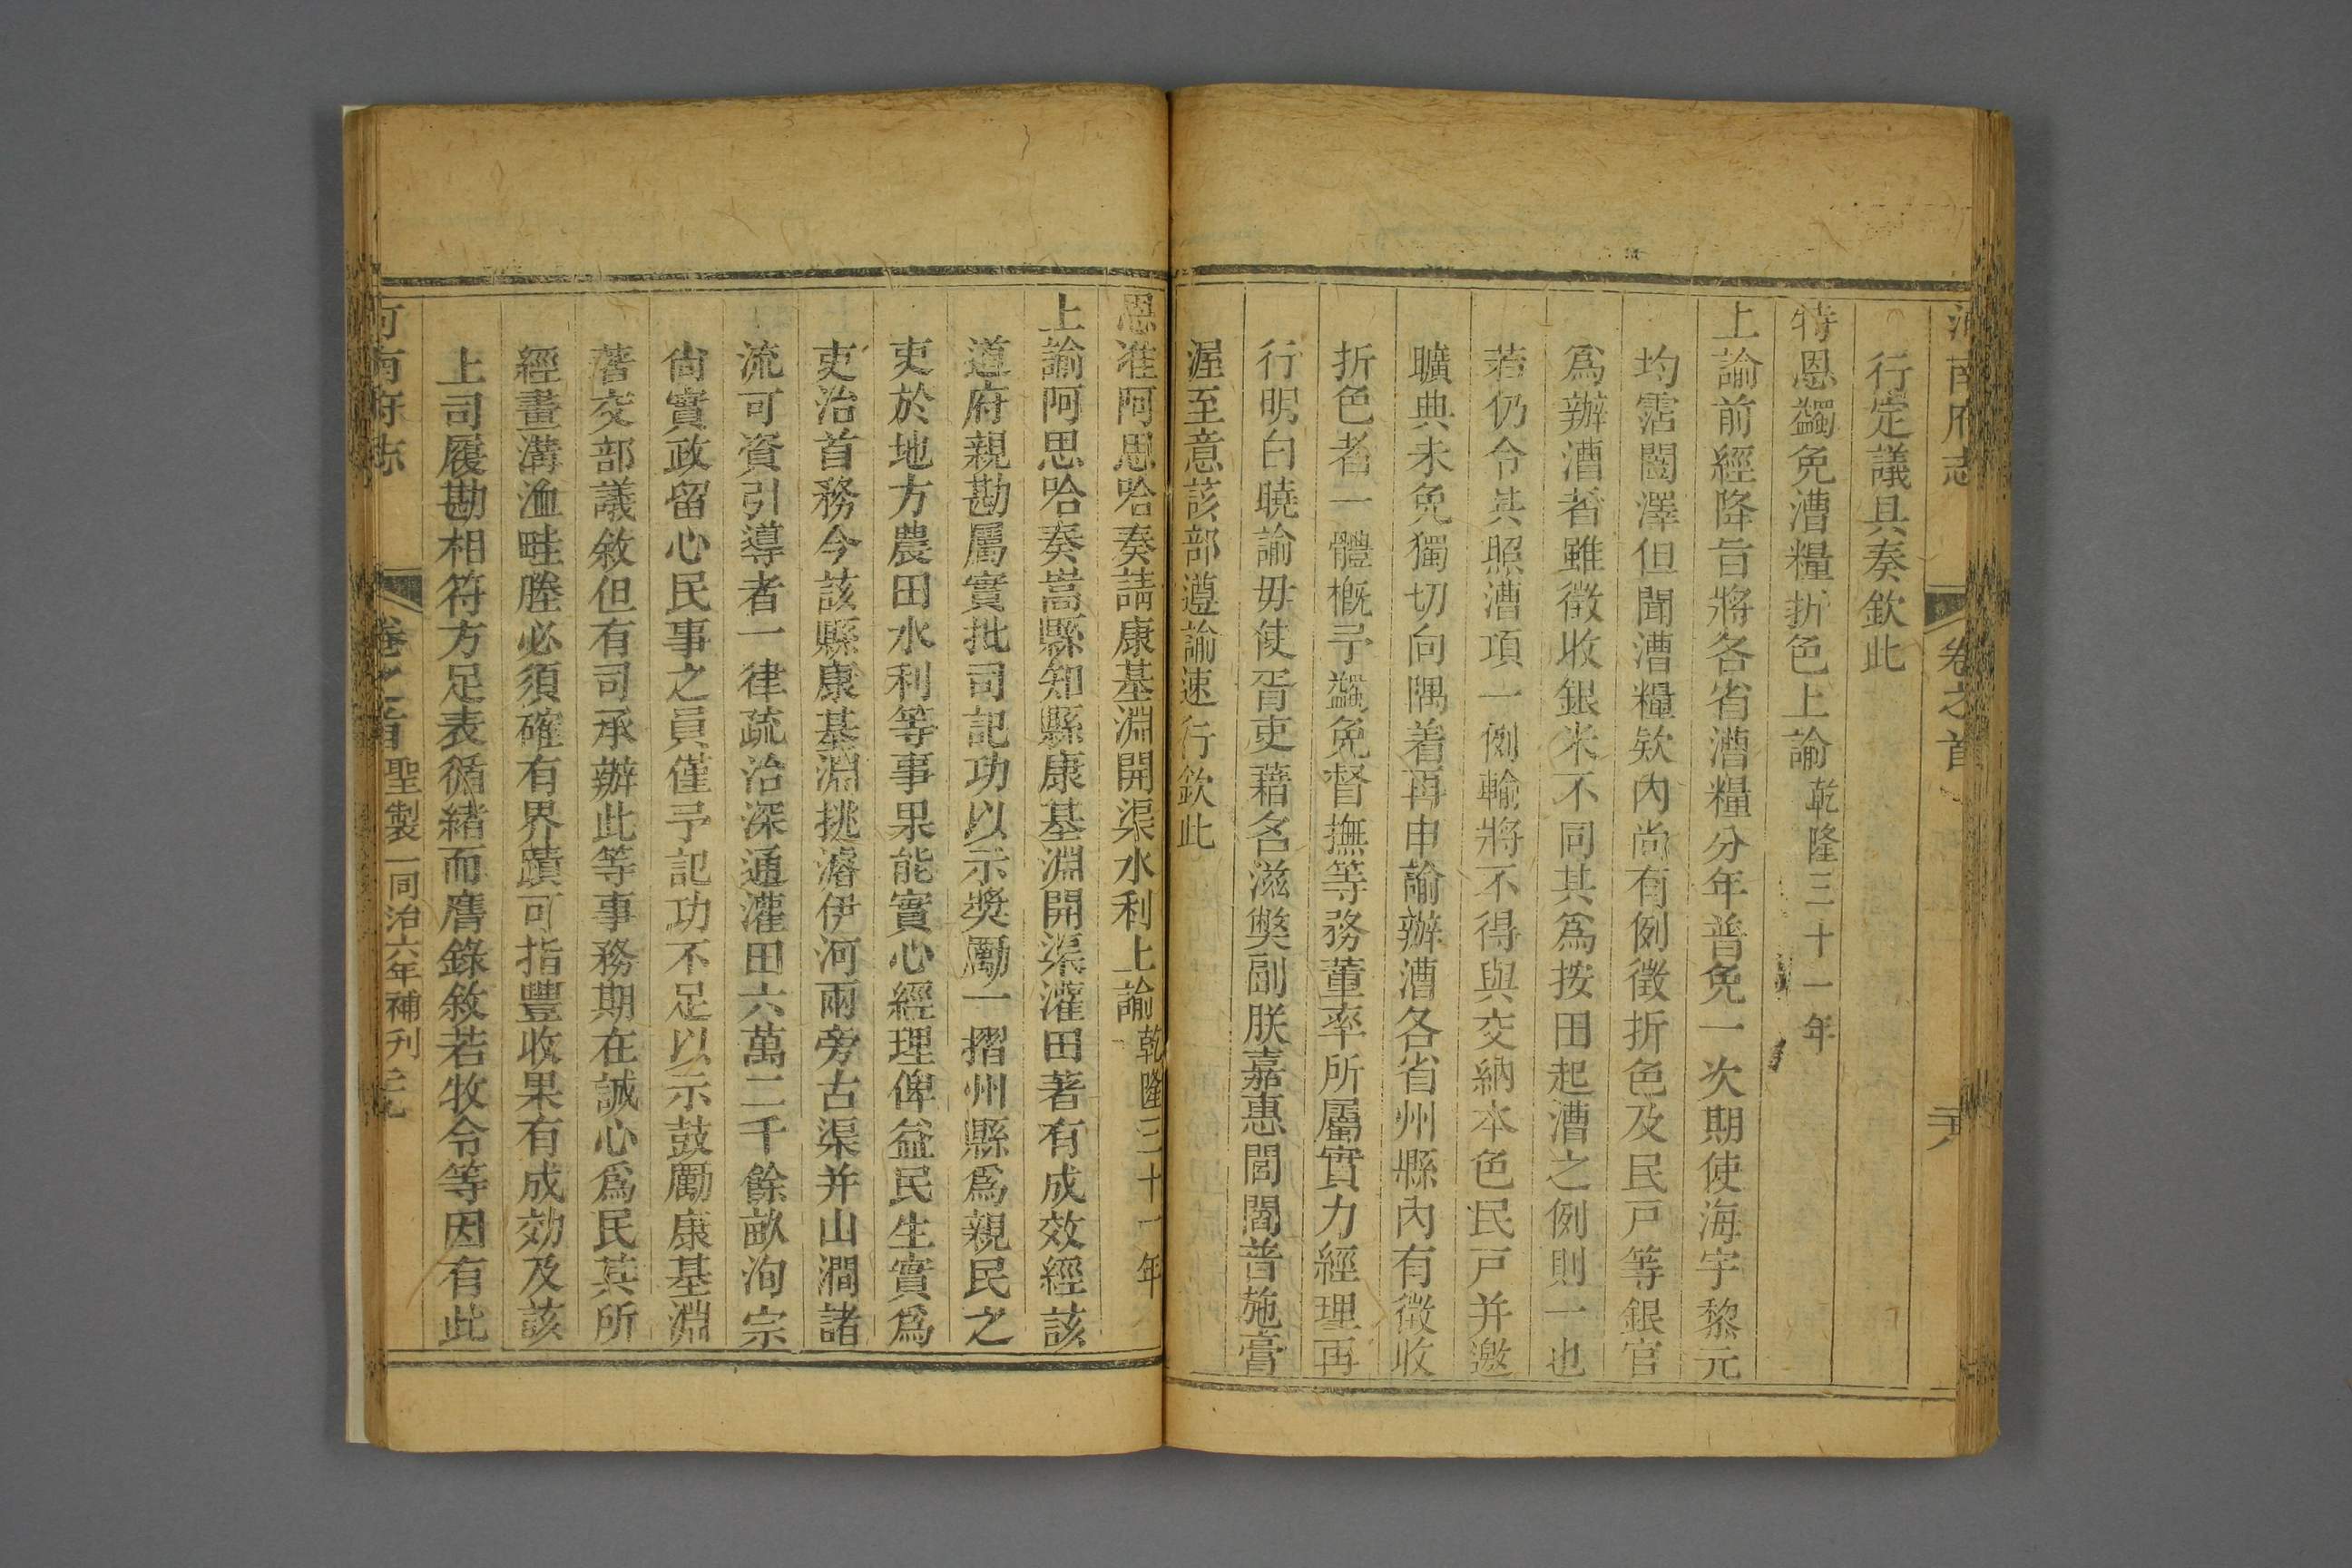 河南府志 卷之首 天
行定議具奏欽此
特恩蠲免漕糧折色上諭乾隆三十一年
上諭前經降旨將各省漕糧分年普免一次期使海宇黎元
均霑闓澤但聞漕糧欵內尚有例徵折色及民戸等銀官
爲辦漕者雖徵收銀米不同其爲按田起漕之例則一也
若仍令其照漕項一例輸將不得與交納本色民戸并邀
曠典未免獨切向隅着再申諭辦漕各省州縣內有徵收
折色者一體槪予蠲免督撫等務董率所屬實力經理再
行明白曉諭毋使胥吏藉名滋獘副朕嘉惠閭閻普施膏
渥至意該部遵諭速行欽此
恩准阿思哈奏請康基淵開渠水利上諭乾隆三十一年
上諭阿思哈奏嵩縣知縣康基淵開渠灌田著有成效經該
道府親勘屬實批司記功以示獎勵一摺州縣爲親民之
吏於地方農田水利等事果能實心經理俾益民生實爲
吏治首務今該縣康基淵挑濬伊河兩旁古渠并山澗諸
流可資引導者一律疏治深通灌田六萬二千餘畝洵宗
尚實政留心民事之員僅予記功不足以示鼓勵康基淵
著交部議敘但有司承辦此等事務期在誠心爲民其所
經畫溝洫畦塍必須確有界蹟可指豐收果有成効及該
上司履勘相符方足表循緒而膺錄敘若牧令等因有此
河南府志 卷之首 聖製一 同治六年補刊 元